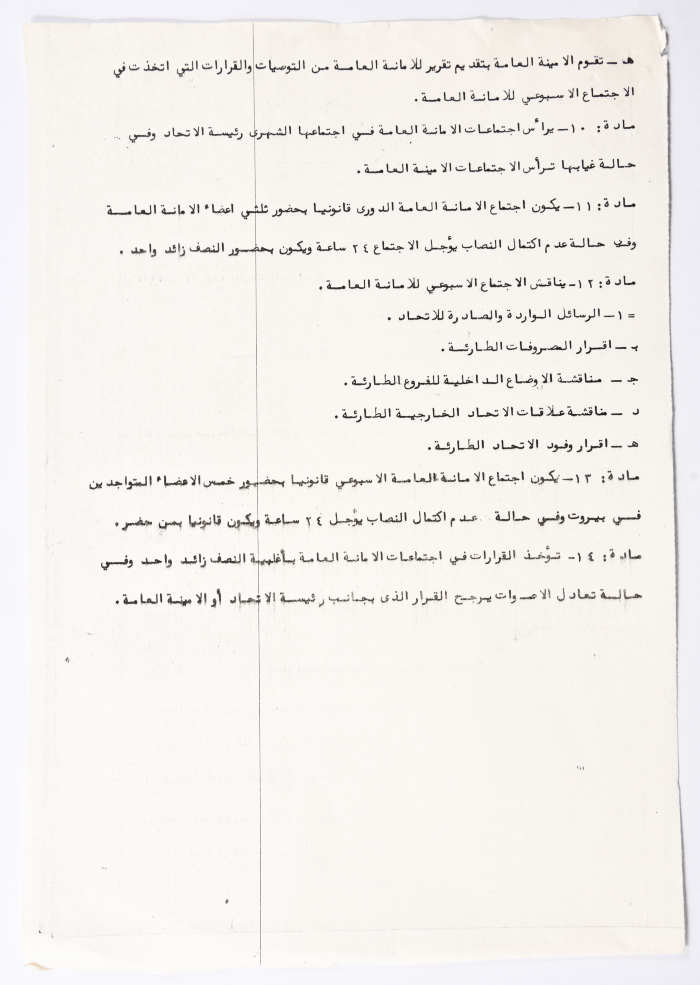 هـ ـ تقوم الامينة العامة بتقديم تقرير للامانة العامة من التوصيات والقرارات التي اتخذت في
الاجتماع الاسبوعي للامانة العامة .
مادة : ١٠ ـ يرأس اجتماعات الامانة العامة في اجتماعها الشهرى رئيسة الاتحاد وفي
حالة غيابها ترأس الاجتماعات الامينة العامة .
مادة : ١١ ـ يكون اجتماع الامانة العامة الدورى قانونيا بحضور ثلثي اعضاء الامانة العامة
وفي حالة عدم اكتمال النصاب يؤجل الاجتماع ٢٤ ساعة ويكون بحضور النصف زائد واحد .
مادة : ١٢ ـ يناقش الاجتماع الاسبوعي للامانة العامة .
= ١ ـ الرسائل الواردة والصادرة للاتحاد .
بـ ـ اقرار المصروفات الطارئة .
جـ ـ مناقشة الاوضاع الداخلية للفروع الطارئة .
د ـ مناقشة علاقات الاتحاد الخارجية الطارئة .
هـ ـ اقرار وفود الاتحاد الطارئة .
مادة : ١٣ ـ يكون اجتماع الامانة العامة الاسبوعي قانونيا بحضور خمس الاعضاء المتواجدين
في بيروت وفي حالة عدم اكتمال النصاب يؤجل ٢٤ ساعة ويكون قانونيا بمن حضر .
مادة : ١٤ ـ تؤخذ القرارات في اجتماعات الامانة العامة بأغلبية النصف زائد واحد وفي
حالة تعادل الاصوات يرجح القرار الذى بجانب رئيسة الاتحاد أو الامينة العامة .